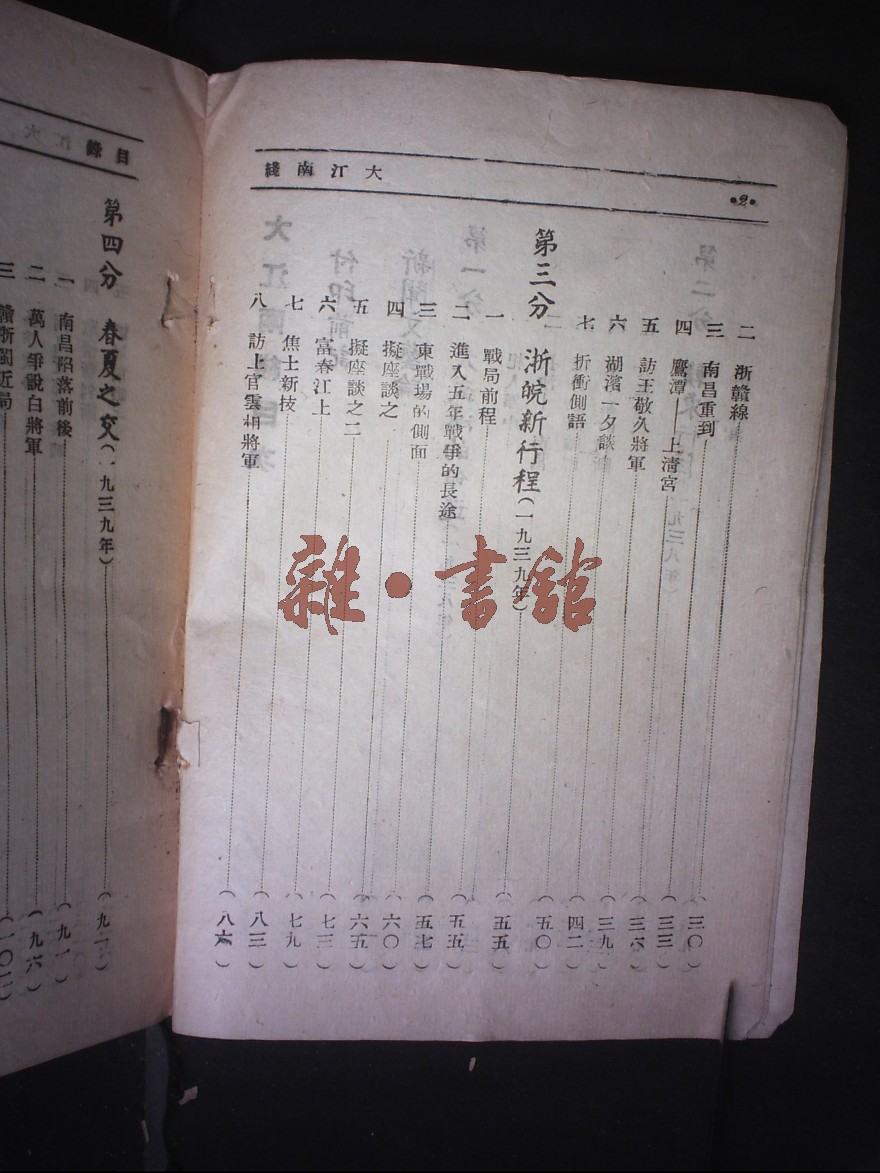 大江南綫
•2•
二 浙贛線（三〇）
三 南昌重到（三三）
四 鷹潭——上清宮（三六）
五 訪王敬久將軍（三九）
六 湖濱一夕談（四二）
七 折衝側語（五〇）
第三分 浙皖新行程（一九三九年）（五五）
一 戰局前程（五五）
二 進入五年戰爭的長途（五七）
三 東戰場的側面（六〇）
四 擬座談之一（六五）
五 擬座談之二（七三）
六 富春江上（七九）
七 焦土新技（八三）
八 訪上官雲相將軍（八六）
目錄
第四分 春夏之交（一九三九年）（九一）
一 南昌陷落前後（九一）
二 萬人爭說白將軍（九六）
三 贛浙閩近局
雜·書館